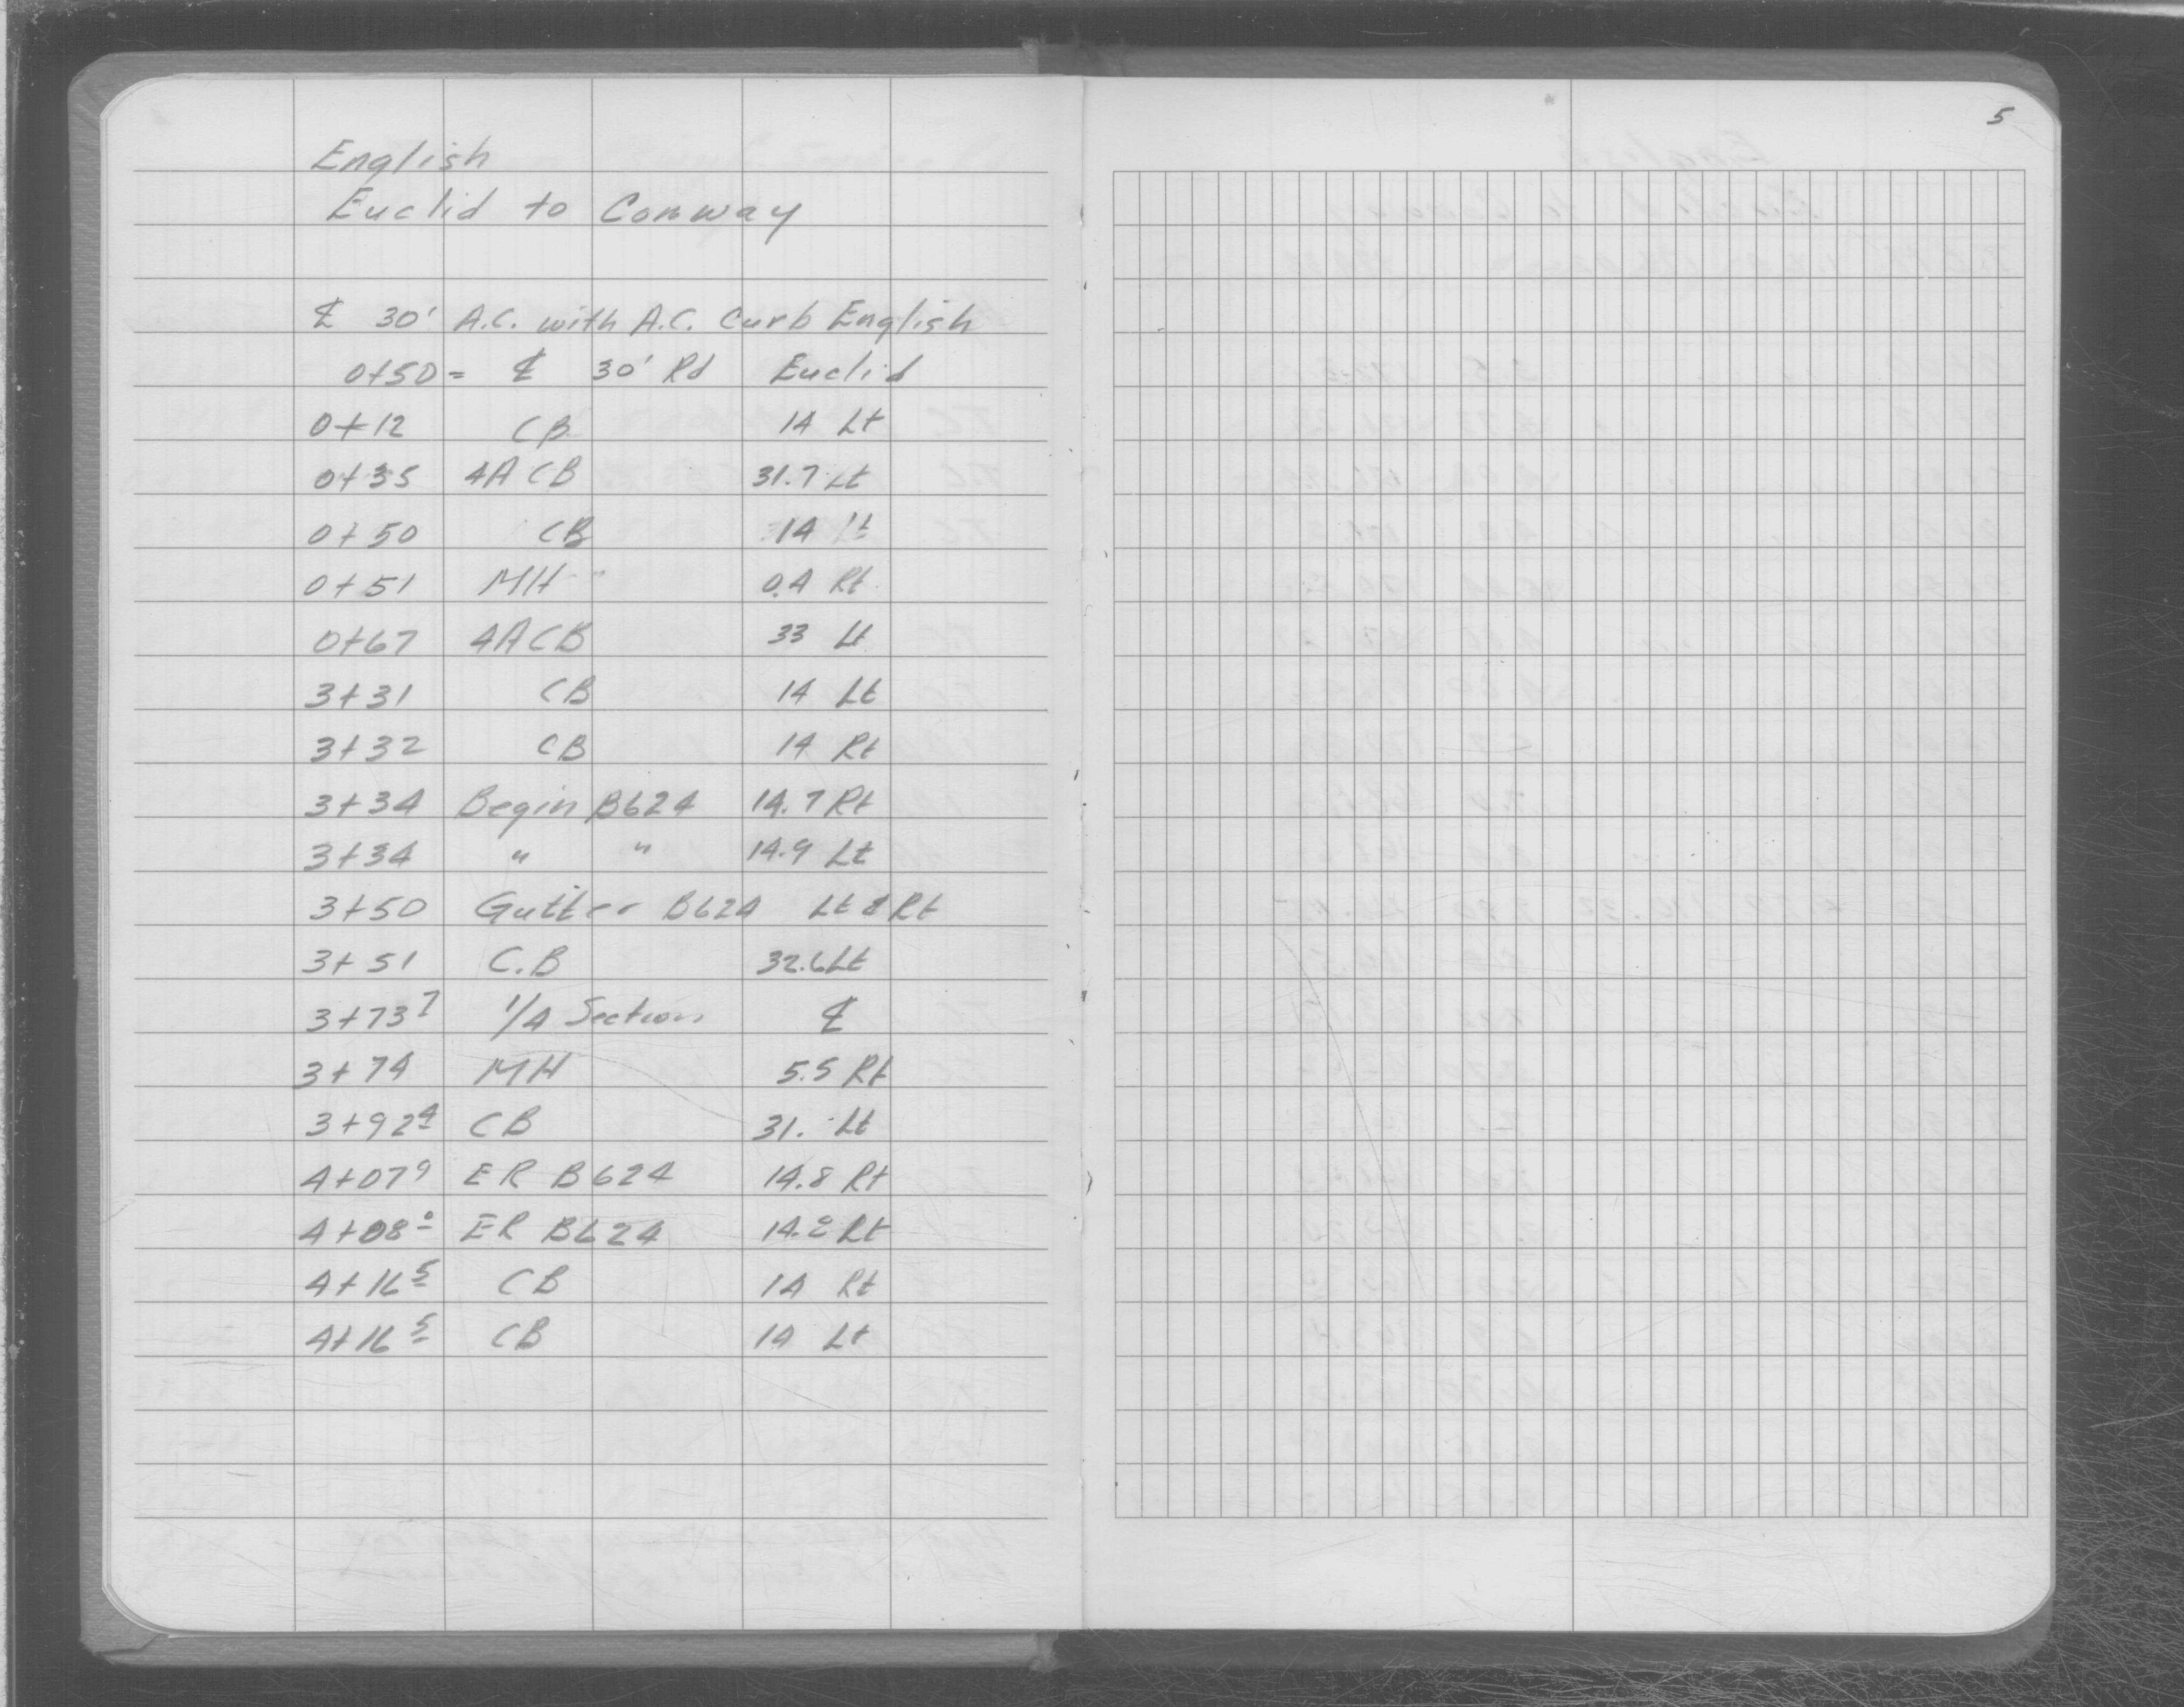 5
English
Euclid to Conway
℄ 30' A.C. with A.C. Curb English
0+50 = ℄ 30' Rd Euclid
0+12 CB 14 Lt
0+35 4A CB 31.7 Lt
0+50 CB 14 Lt
0+51 MH 0.4 Rt
0+67 4A CB 33 Lt
3+31 CB 14 Lt
3+32 CB 14 Rt
3+34 Begin B624 14.7 Rt
3+34 " " 14.9 Lt
3+50 Gutter B624 Lt & Rt
3+51 C.B 32.6 Lt
3+73⁷ 1/4 Section ℄
3+74 MH 5.5 Rt
3+92⁴ CB 31. Lt
4+07⁹ ER B624 14.8 Rt
4+08⁰ ER B624 Rt
4+16⁵ CB 14 Rt
4+16⁵ CB 14 Lt